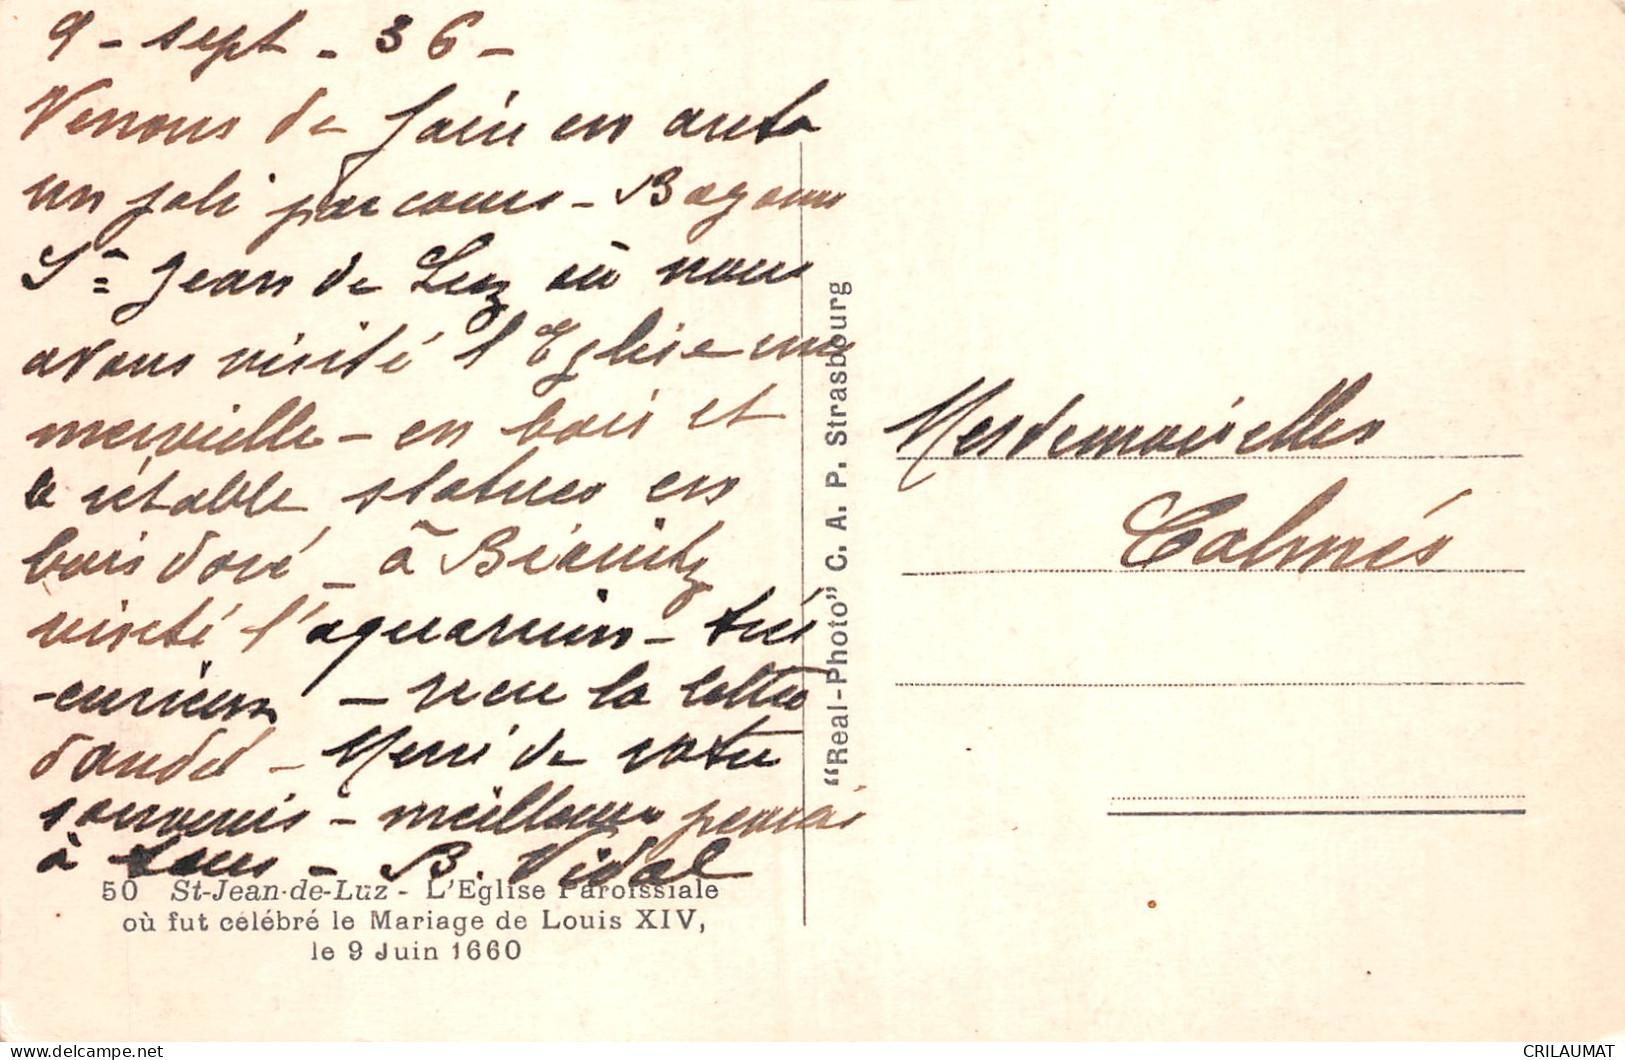 9 - sept - 36 -
Venons de faire en auto
un joli parcours - Bayonne
St= Jean de Luz où nous
avons visité l'Eglise une
merveille - en bois et
le rétable statues en
bois doré - à Biarritz
visité l'aquarium - très
curieux - reçu la lettre
d'Merci de votre
souvenir - meilleures pensées
à tous - B. Vidal
50 St-Jean-de-Luz - L'Eglise Paroissiale
où fut célébré le Mariage de Louis XIV,
le 9 Juin 1660
"Real-Photo" C. A. P. Strasbourg
Mesdemoiselles
Calmés
CRILAUMAT